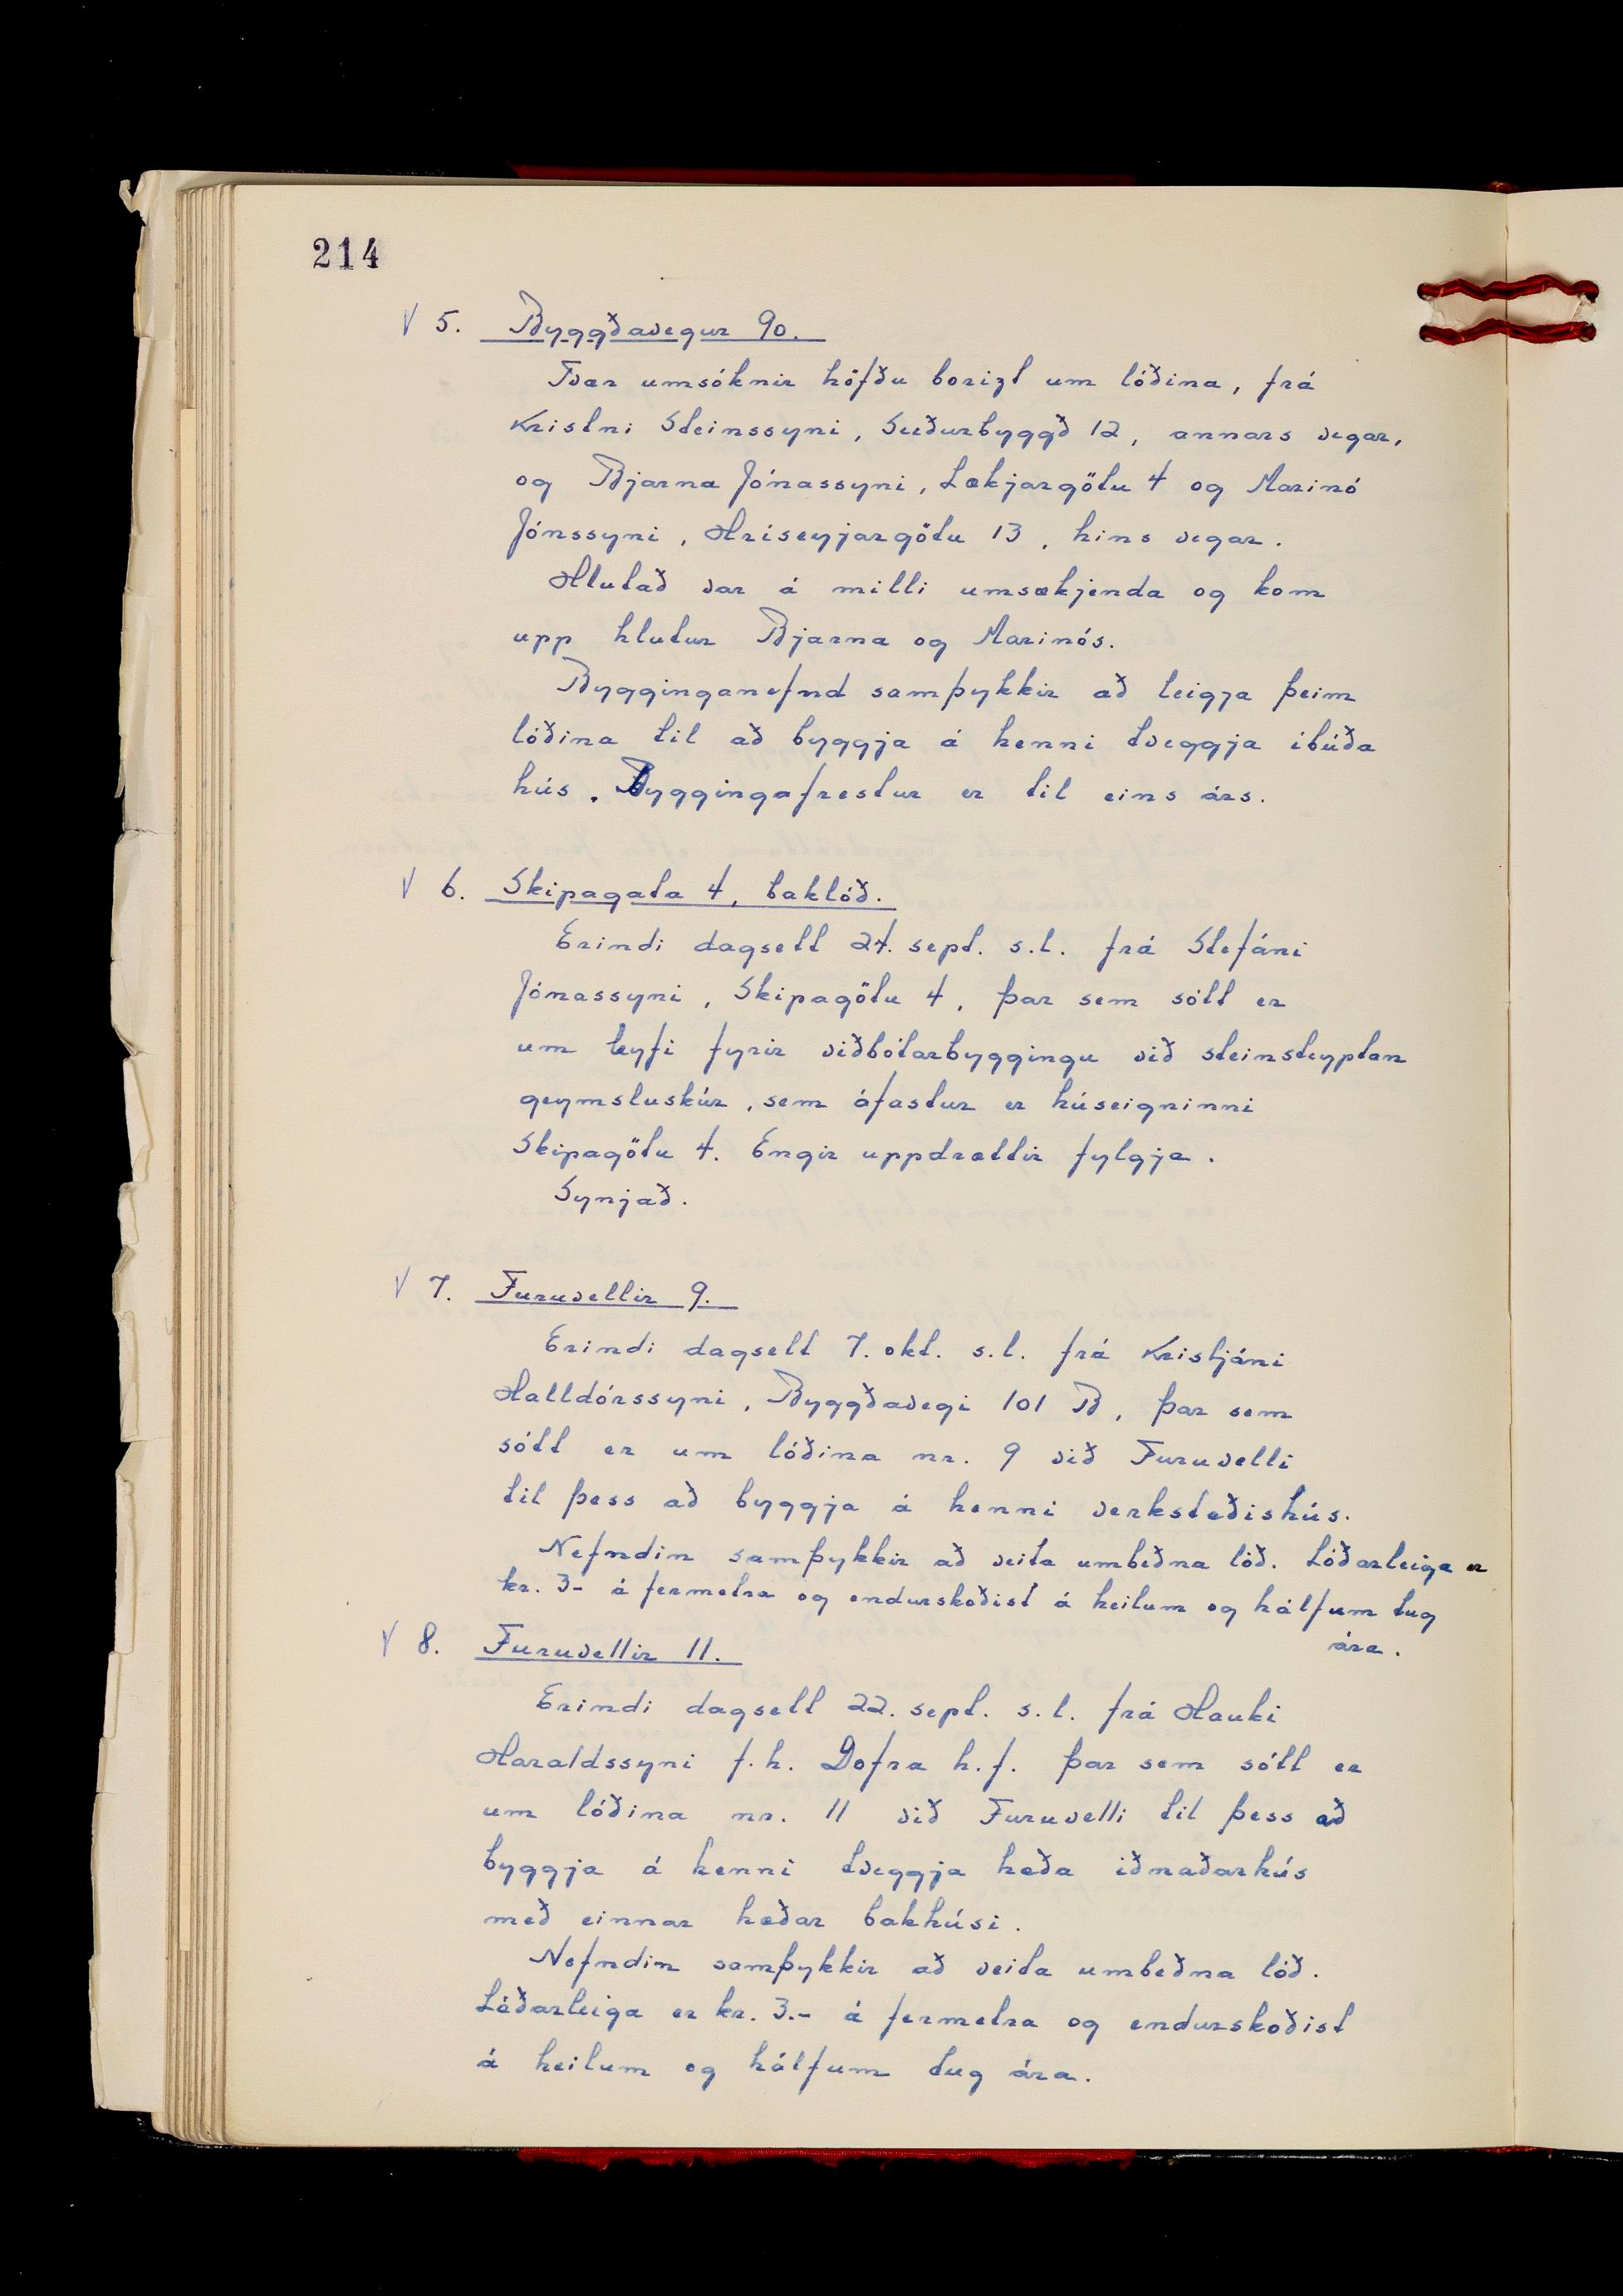 214
√ 5. Byggðavegur 90.
Tvær umsóknir höfðu borizt um lóðina, frá
Kristni Steinssyni, Suðurbyggð 12, annars vegar,
og Bjarna Jónassyni, Lækjargötu 4 og Marinó
Jónssyni, Hríseyjargötu 13, hins vegar.
Hlutað var á milli umsækjenda og kom
upp hlutur Bjarna og Marinós.
Bygginganefnd samþykkir að leigja þeim
lóðina til að byggja á henni tveggja íbúða
hús. Byggingafrestur er til eins árs.
√ 6. Skipagata 4, baklóð.
Erindi dagsett 24. sept. s.l. frá Stefáni
Jónassyni, Skipagötu 4, þar sem sótt er
um leyfi fyrir viðbótarbyggingu við steinsteyptan
geymsluskúr, sem áfastur er húseigninni
Skipagötu 4. Engir uppdrættir fylgja.
Synjað.
√ 7. Furuvellir 9.
Erindi dagsett 7. okt. s.l. frá Kristjáni
Halldórssyni, Byggðavegi 101 B, þar sem
sótt er um lóðina nr. 9 við Furuvelli
til þess að byggja á henni verkstæðishús.
Nefndin samþykkir að veita umbeðna lóð. Lóðarleiga er
kr. 3- á fermetra og endurskoðist á heilum og hálfum tug
ára.
√ 8. Furuvellir 11.
Erindi dagsett 22. sept. s.l. frá Hauki
Haraldssyni f.h. Dofra h.f. þar sem sótt er
um lóðina nr. 11 við Furuvelli til þess að
byggja á henni tveggja hæða iðnaðarhús
með einnar hæðar bakhúsi.
Nefndin samþykkir að veita umbeðna lóð.
Lóðarleiga er kr. 3.- á fermetra og endurskoðist
á heilum og hálfum tug ára.